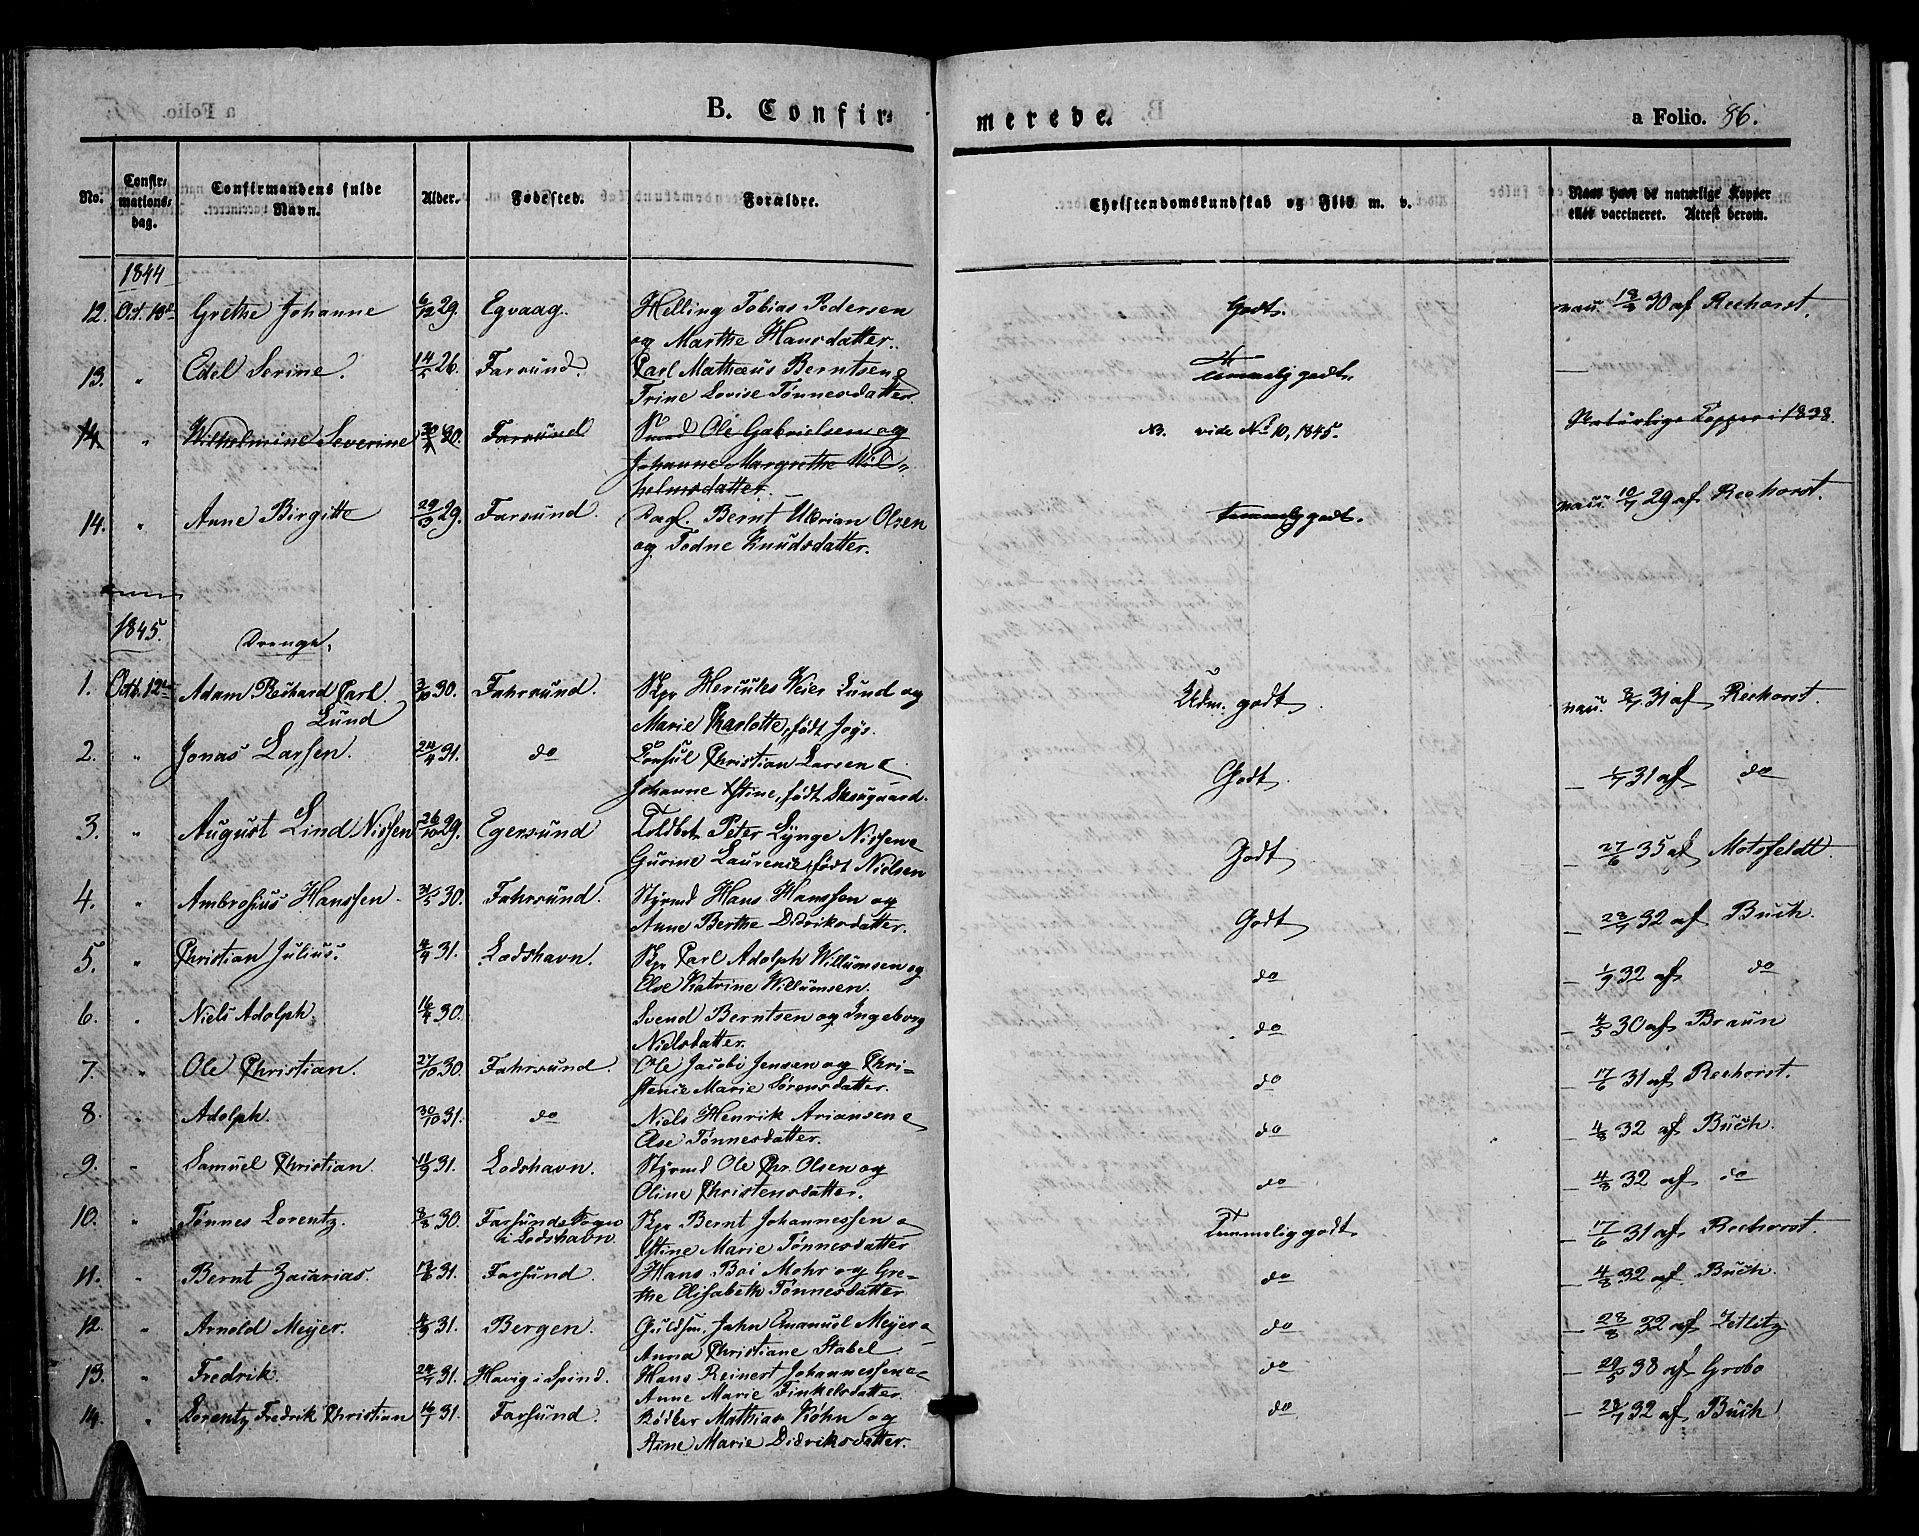 B. Confirmerede.
a Folio. 86.
No. Confirmationsdag. Confirmandens fulde Navn. Alder. Fødested. Forældre. Christendomskundskab og Flid m. v. Naar have de naturlige Kopper eller vaccineret. Attest derom.
1844
12. Oct. 13de Grethe Johanne 6/12 29. Egvaag. Helling Tobias Pedersen Godt. vacc. 18/8 30 af Reehorst.
og Marthe Hansdatter.
13. " Edel Serine. 14/5 26. Farsund. Carl Mathæus Berntsen & Temmelig godt. —
Trine Lovise Tønnesdatter
14. " Wilhelmine Severine 30. Farsund Smed Ole Gabrielsen og NB. vide No 10, 1845. Naturlige Kopper i 1838.
Johanne Margrethe Wil-
helmsdatter.
14. " Anne Birgitte 29/3 29. Farsund. Dagl. Bernt Ubrian Olsen temmelig godt. vacc. 10/7 29 af Reehorst.
og Todne Knudsdatter.
1845.
Drenge.
1. Octb. 12te Adam Richard Carl 3/10 30. Fahrsund. Skpr Hercules Weier Lund og Udm. godt vacc. 8/7 31 af Reehorst.
Lund Marie Charlotte, født Jøgs.
2. " Jonas Larssen. 24/4 31. do Consul Christian Larsen & Godt — 1/7 31 af do
Johanne Stine, født Skougaard.
3. " August Lind Nissen 26/10 29. Egersund Toldbet. Peter Lynge Nissen & Godt — 27/6 35 af Motsfeldt.
Gurine Laurencie, født Nielsen
4. " Ambrosius Hanssen. 31/5 30. Fahrsund. Styrmd Hans Hanssen og Godt — 28/7 32 af Buch.
Anne Berthe Didriksdatter.
5. " Christian Julius. 4/4 31. Lodshavn. Skpr Carl Adolph Willumsen og do — 1/9 32 af do
Else Katrine Willumsen.
6. " Niels Adolph. 16/4 30. Svend Berntsen og Ingeborg do — 4/5 30 af Braun
Nielsdatter.
7. " Ole Christian. 27/10 30. Fahrsund. Ole Jacobi Jensen og Chri- do — 17/6 31 af Reehorst.
stence Marie Sørensdatter.
8. " Adolph. 30/10 31. do Niels Henrik Ariansen & do — 4/8 32 af Buch.
Else Tønnesdatter.
9. " Samuel Christian. 11/9 31. Lodshavn. Styrmd Ole Chr. Olsen og do — 4/8 32 af do
Oline Christensdatter.
10. " Tønnes Lorentz. 8/8 30. Farsunds Sogn Skpr Bernt Johannessen & Temmelig godt. — 17/6 31 af Reehorst.
i Lodshavn Stine Marie Tønnesdatter
11. " Bernt Zacarias. 31. Farsund. Hans Boi Mohr og Gre- do — 4/8 32 af Buch.
the Elisabeth Tønnesdatter
12. " Arnold Meyer. 4/9 31. Bergen. Guldsm. Jahn Emanuel Meyer & do — 28/8 32 af Zetlitz
Anna Christiane Stabel.
13. " Fredrik. 31. Havig i Spind. Hans Reinert Johannessen & do — 29/5 38 af Grobo
Anne Marie Finkelsdatter.
14. " Lorentz Fredrik Christian 16/1 31. Farsund. Bødker Mathias Køhn og do — 28/7 32 af Buch
Anne Marie Didriksdatter.